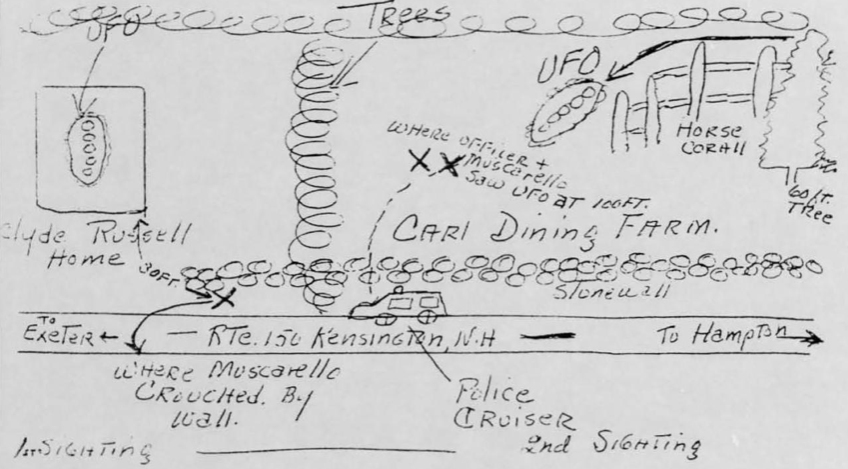 UFO
Trees
UFO
HORSE
CORALL
60 FT.
TREE
WHERE OFFICER +
MUSCARELLO
SAW UFO AT 100FT.
CARL Dining FARM.
Clyde Russell
Home
30FT.
Stonewall
TO
EXETER
RTE. 150 Kensington, N.H
To Hampton
WHERE MUSCARELLO
CROUCHED BY
WALL.
POLICE
CRUISER
1st SIGHTING
2nd SIGHTING